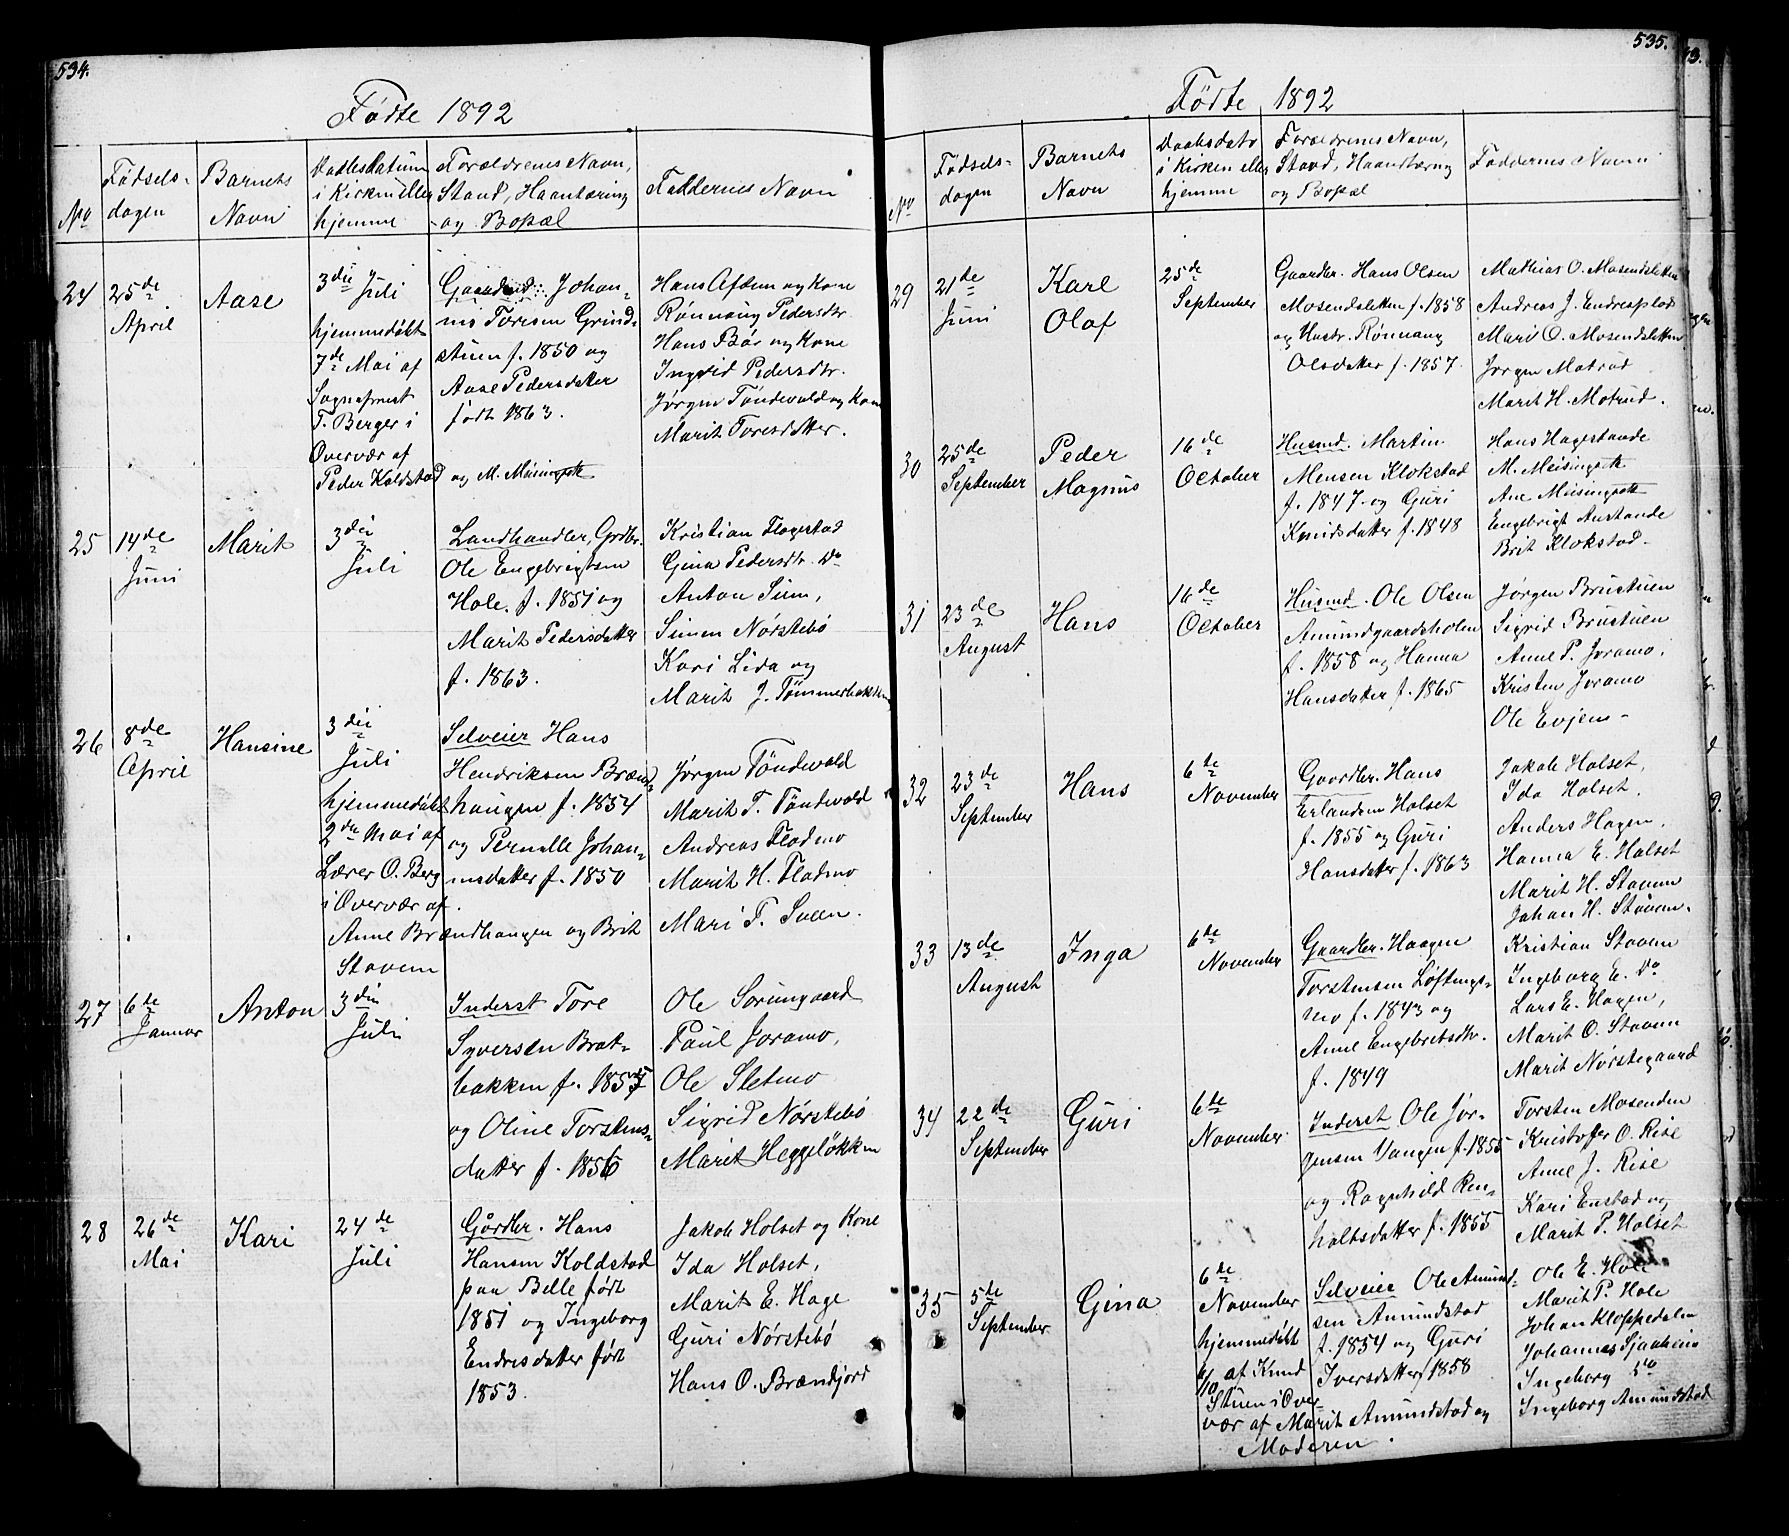 534.
Fødte 1892
No
Fødsels-
dagen
Barnets
Navn
Daabsdatum
i Kirken eller
hjemme
Forældrenes Navn,
Stand, Haantæring
og Bopæl
Faddernes Navn
24
25de
April
Aase
3die Juli
hjemmedøbt
7de Mai af
Sognepræst
T. Berger i
Overvær af
Peder Koldstad og M. Misingsæt
Johan-
nes Toresen Grind-
stuen f. 1850 og
Aase Pedersdatter
født 1863.
Hans og Kone
Rønnaug Pedersdtr.
Hans Bør og Kone
Ingrid Pedersdtr.
Jørgen Töndevold og Kone
Marit Toresdatter.
25
14de
Juni
Marit
3die
Juli
Landhandler, Grdbr.
Ole Engebrigtsen
Hole. f. 1851 og
Marit Pedersdatter
f. 1863.
Kristian Flagestad
Gina Pedersdtr. Do
Anton Siem,
Simen Nørstebö
Kari Lida og
Marit J. Tømmerbakken
26
8de
April
Hansine
3die
Juli
hjemmedøbt
2den Mai af
Lærer O. Berg
i Overvær af
Anne Brændhaugen og Brit
Stavem
Selveier Hans
Hendriksen Brænd-
haugen f. 1854
og Pernille Johan-
nesdatter f. 1850
Jørgen Töndevold
Marit T. Töndevold
Andreas Fladmo
Marit H. Fladmo
Mari T. Sveen.
27
6te
Januar
Anton
3die
Juli
Inderst Tore
Syversen Brat-
bakken f. 1855
og Oline Torstens-
datter f. 1856
Ole Sorumgaard
Paul Joramo,
Ole Sletmo
Sigrid Nørstebö
Marit Heggeløkken
28
26de
Mai
Kari
24de
Juli
Gårdbr. Hans
Hansen Koldstad
paa Belle født
1851 og Ingeborg
Endresdatter født
1853.
Jakob Holset og Kone
Ida Holset,
Marit E. Hage
Guri Nørstebö
Hans O. Brændjord
535.
Fødte 1892
No
Fødsels-
dagen
Barnets
Navn
Daabsdato
i Kirken eller
hjemme
Forældrenes Navn,
Stand, Haantæring
og Bopæl
Faddernes Navn
29
21de
Juni
Karl
Olaf
25de
September
Gaardbr. Hans Olsen
Mosendsletten f. 1858
og Hustr. Rønnaug
Olsdatter f. 1857.
Mathias O. Mosendsletten
Andreas J. Endresplad
Mari O. Mosendsletten
Jørgen Motrud
Marit H. Motrud.
30
25de
September
Peder
Magnus
16de
October
Husmd. Martin
Mensen Klokstad
f. 1847 og Guri
Knudsdatter f. 1848
Hans Hagestande
M. Meisingsæt
Ane Misingsæt
Engebrigt Anstande
Brit Klokstad.
31
23de
August
Hans
16de
October
Husmd. Ole Olsen
Amundgaardsholen
f. 1858 og Hanna
Hansdatter f. 1865
Jørgen Brustuen
Sigrid Brustuen
Anne P. Joramo.
Kristen Joramo
Ole Evjem-
32
23de
September
Hans
6te
November
Gaardbr. Hans
Erlandsen Holset
f. 1855 og Guri
Hansdatter f. 1863
Jakob Holset,
Ida Holset.
Anders Hagen.
Hanna E. Holset
Marit H. Stavem
Johan H. Stavem.
33
13de
August
Inga
6te
November
Gaardbr. Haagen
Torstensen Løftings-
mo f. 1843 og
Anne Engebretsdtr.
f. 1849
Kristian Stavem
Ingeborg E. Do
Lars E. Hagen,
Marit O. Stavem
Marit Nørstegaard
34
22de
September
Guri
6te
November
Inderst Ole Jør-
gensen Vangen f. 1855
og Ragnhild Ren-
holtsdatter f. 1855
Torsten Mosenden
Kristoffer O. Rise
Anne J. Rise
Kari Enstad og
Marit P. Holset
35
5te
September
Gina
6te
November
hjemmedøbt
af Knud
Stuen i Over-
vær af Marit Amundstad og
Moderen.
Selveier Ole Amund-
sen Amundstad
f. 1854 og Guri
Iversdatter f 1858
Ole E. Hole
Marit P. Hole
Johan Kloppedalen
Johannes Sjaaheim
Ingeborg Do
Ingeborg Amundstad